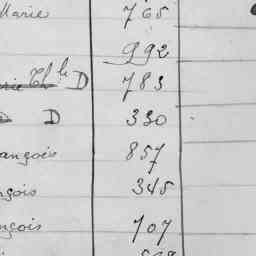 Marie 765
992
D 783
D 330
ançois 857
nçois 345
nçois 707